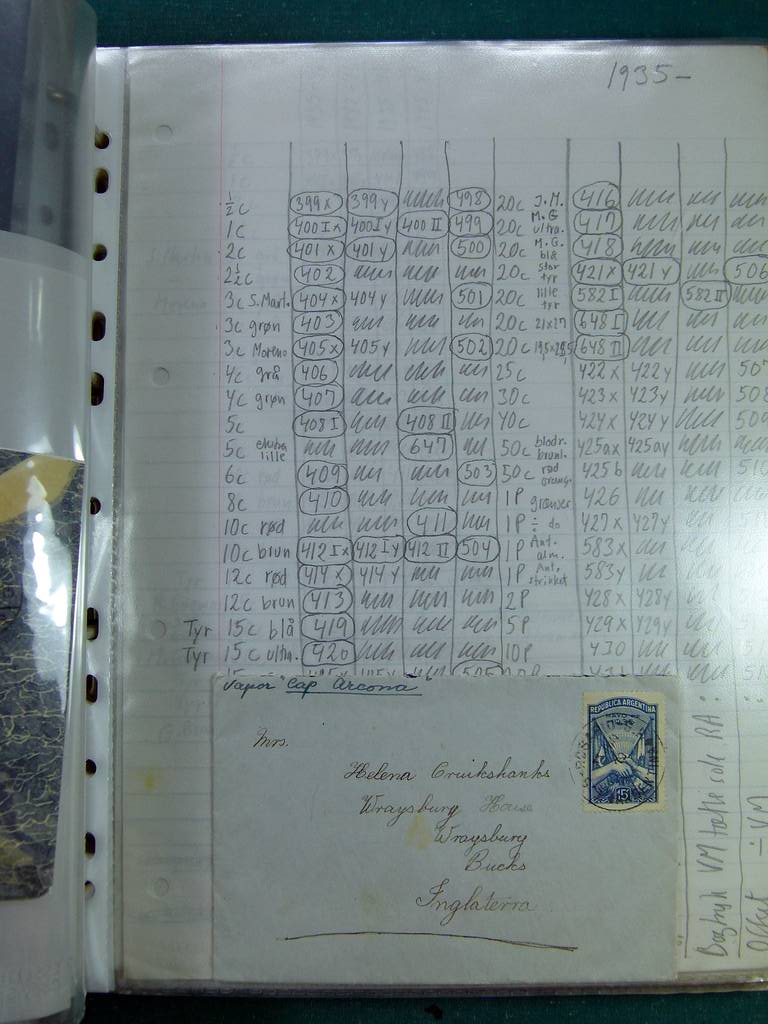 1935-
½c 399x 399y 498 20c J.M. 416
1c 400Ix 400Iy 400II 499 20c M.G ultra. 417
2c 401x 401y 500 20c M.G. blå 418
2½c 402 20c stor tyr 421x 421y 506
3c S.Mart. 404x 404y 501 20c lille tyr 582I 582II
3c grøn 403 20c 21x27 648I
3c Moreno 405x 405y 502 20c 19,5x28,5 648II
4c grå 406 25c 422x 422y 507
4c grøn 407 30c 423x 423y 508
5c 408I 408II 40c 424x 424y 509
5c lille 647 50c 425ax 425ay
6c 409 503 50c rød orange 425b 510
8c 410 1P grænser 426
10c rød 411 1P ÷ do 427x 427y
10c brun 412Ix 412Iy 412II 504 1P Ant. alm. 583x
12c rød 414x 414y 1P Ant. strikket 583y
12c brun 413 2P 428x 428y
Tyr 15c blå 419 5P 429x 429y
Tyr 15c ultra. 420 10P 430
505
Vapor "Cap Arcona"
REPUBLICA ARGENTINA
15
Mrs.
Helena Cruikshanks
Wraysburg House
Wraysburg
Bucks
Inglaterra
Bogtryk VM RA
Offset ÷ VM